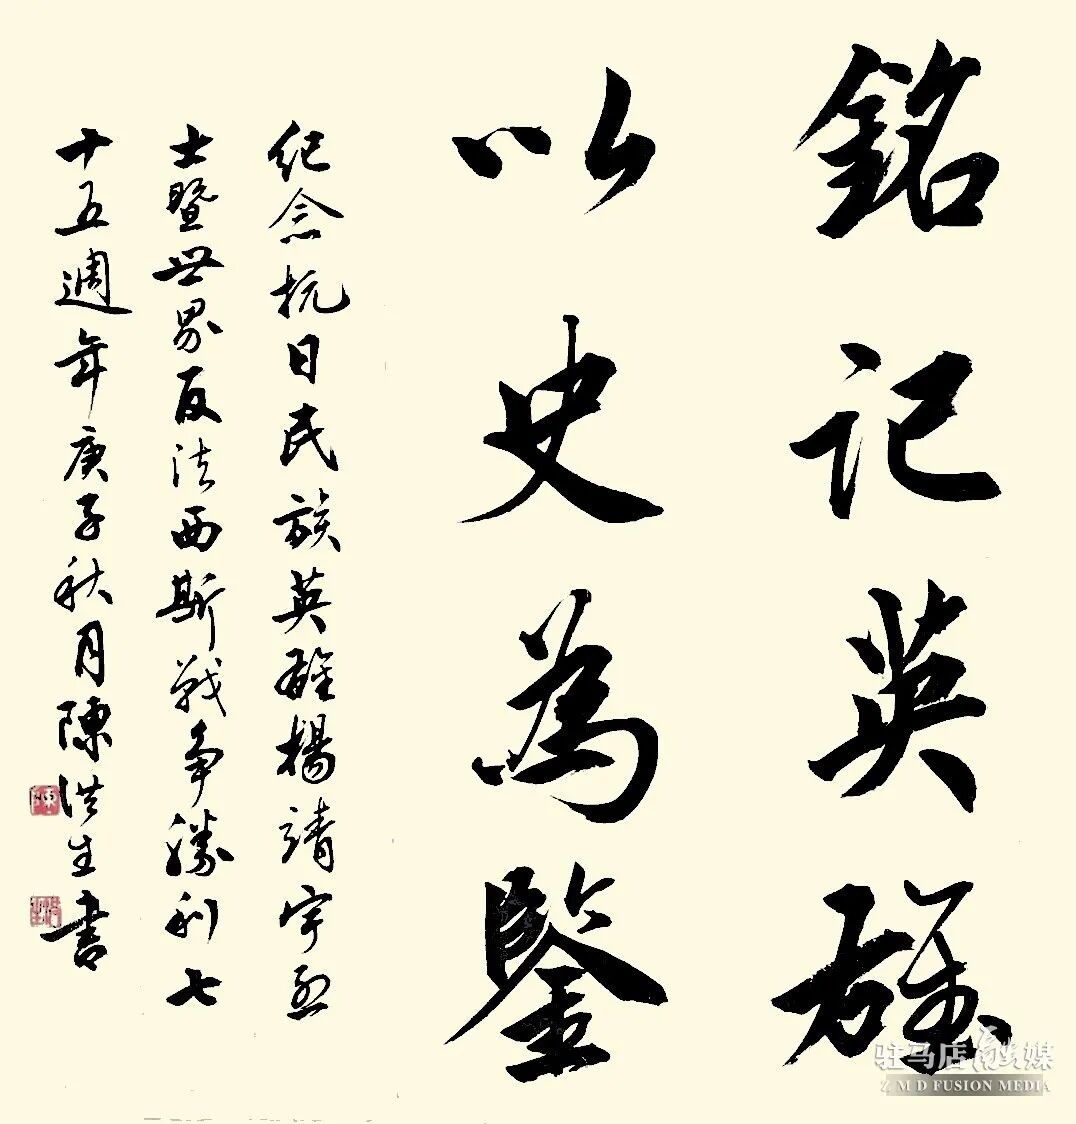 銘记英雄
以史為鑒
纪念抗日民族英雄楊靖宇烈
士暨世界反法西斯战争勝利七
十五週年庚子秋月陳洪生书
驻马店融媒
ZMD FUSION MEDIA